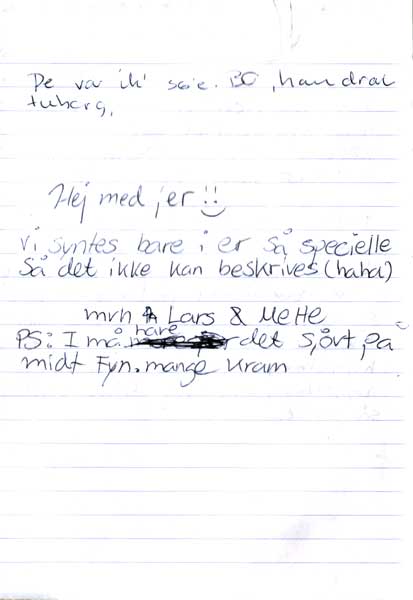 De var ik' seje. BO, han drak
tuborg.
Hej med jer !!
Vi syntes bare i er så specielle
Så det ikke kan beskrives (haha)
mvh Lars & Mette
PS: I må have det sjovt på
midt Fyn. mange kram